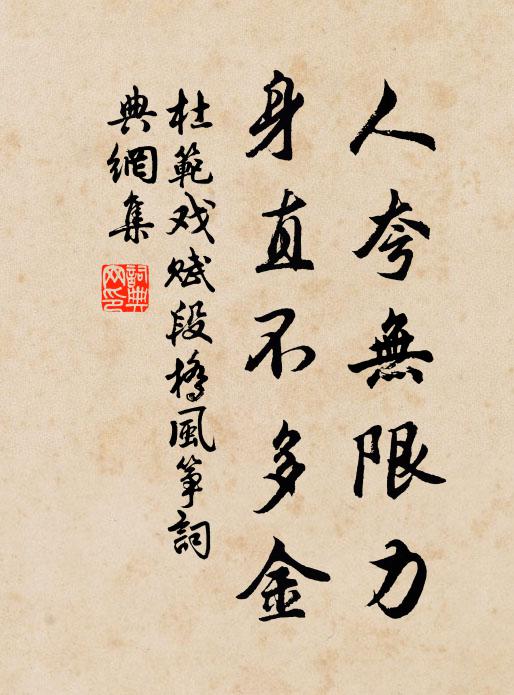 人夸無限力
身直不多金
杜範戏赋段橋風筝詞
典網集
詞典
网印